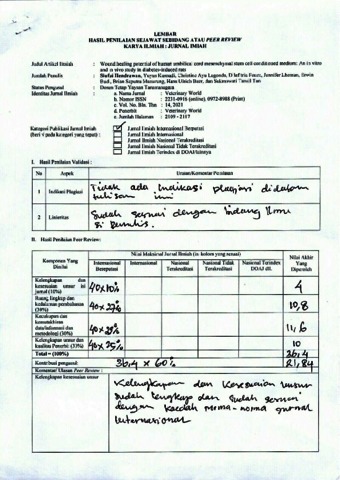 LEMBAR
HASIL PENILAIAN SEJAWAT SEBIDANG ATAU PEER REVIEW
KARYA ILMIAH : JURNAL IMIAH
Judul Artikel Ilmiah : Wound healing potential of human umbilical cord mesenchymal stem cell conditioned medium: An in vitro
and in vivo study in diabetes-induced rats
Jumlah Penulis : Siufui Hendrawan, Yuyus Kusnadi, Christine Ayu Lagonda, Dilafitria Fauza, Jennifer Lheman, Erwin
Budi, Brian Saputra Manurung, Hans Ulrich Baer, dan Sukmawati Tansil Tan
Status Pengusul : Dosen Tetap Yayasan Tarumanagara
Identitas Jurnal Ilmiah : a. Nama Jurnal : Veterinary World
b. Nomor ISSN : 2231-0916 (online), 0972-8988 (Print)
c. Vol. No. Bln. Thn : 14, 2021
d. Penerbit : Veterinary World
e. Jumlah Halaman : 2109 - 2117
Kategori Publikasi Jurnal Ilmiah : Jurnal Ilmiah Internasional Bereputasi
(beri √ pada kategori yang tepat) : Jurnal Ilmiah Internasional
Jurnal Ilmiah Nasional Terakreditasi
Jurnal Ilmiah Nasional Tidak Terakreditasi
Jurnal Ilmiah Terindeks di DOAJ/lainnya
I. Hasil Penilaian Validasi :
No Aspek Uraian/Komentar Penilaian
1 Indikasi Plagiasi Tidak ada Indikasi plagiasi didalam
tulisan ini
2 Linieritas Sudah sesuai dengan bidang Ilmu
si Penulis.
II. Hasil Penilaian Peer Review:
Komponen Yang Dinilai
Nilai Maksimal Jurnal Ilmiah (isi kolom yang sesuai)
Nilai Akhir Yang Diperoleh
Internasional Bereputasi Internasional Nasional Terakreditasi Nasional Tidak Terakreditasi Nasional Terindex DOAJ dll.
Kelengkapan dan kesesuaian unsur isi jurnal (10%) 40x10% 4
Ruang lingkup dan kedalaman pembahasan (30%) 40x27% 10,8
Kecukupan dan kemutakhiran data/informasi dan metodologi (30%) 40x29% 11,6
Kelengkapan unsur dan kualitas Penerbit (30%) 40x25% 10
Total = (100%) 36,4
Kontribusi pengusul: 36,4 x 60% 21,84
Komentar/ Ulasan Peer Review :
Kelengkapan kesesuaian unsur Kelengkapan dan Kesesuaian Unsur
sudah lengkap dan sudah sesuai
dengan kaedah norma-norma jurnal
Internasional